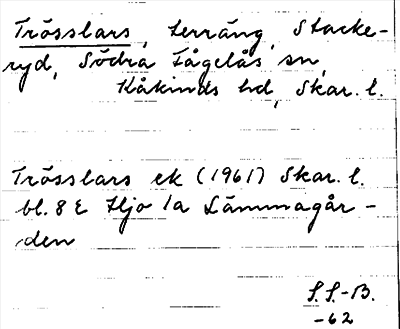 Trösslars, terräng, Stacke-
ryd, Södra Fågelås sn,
Kåkinds hd, Skar. l.
Trösslars ek (1961) Skar. l.
bl. 8 E Hjo 1a Lämmagår-
den
S.S.-B.
-62